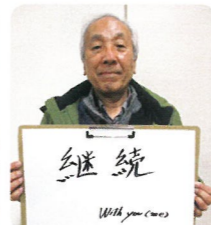 継続
With you (me)